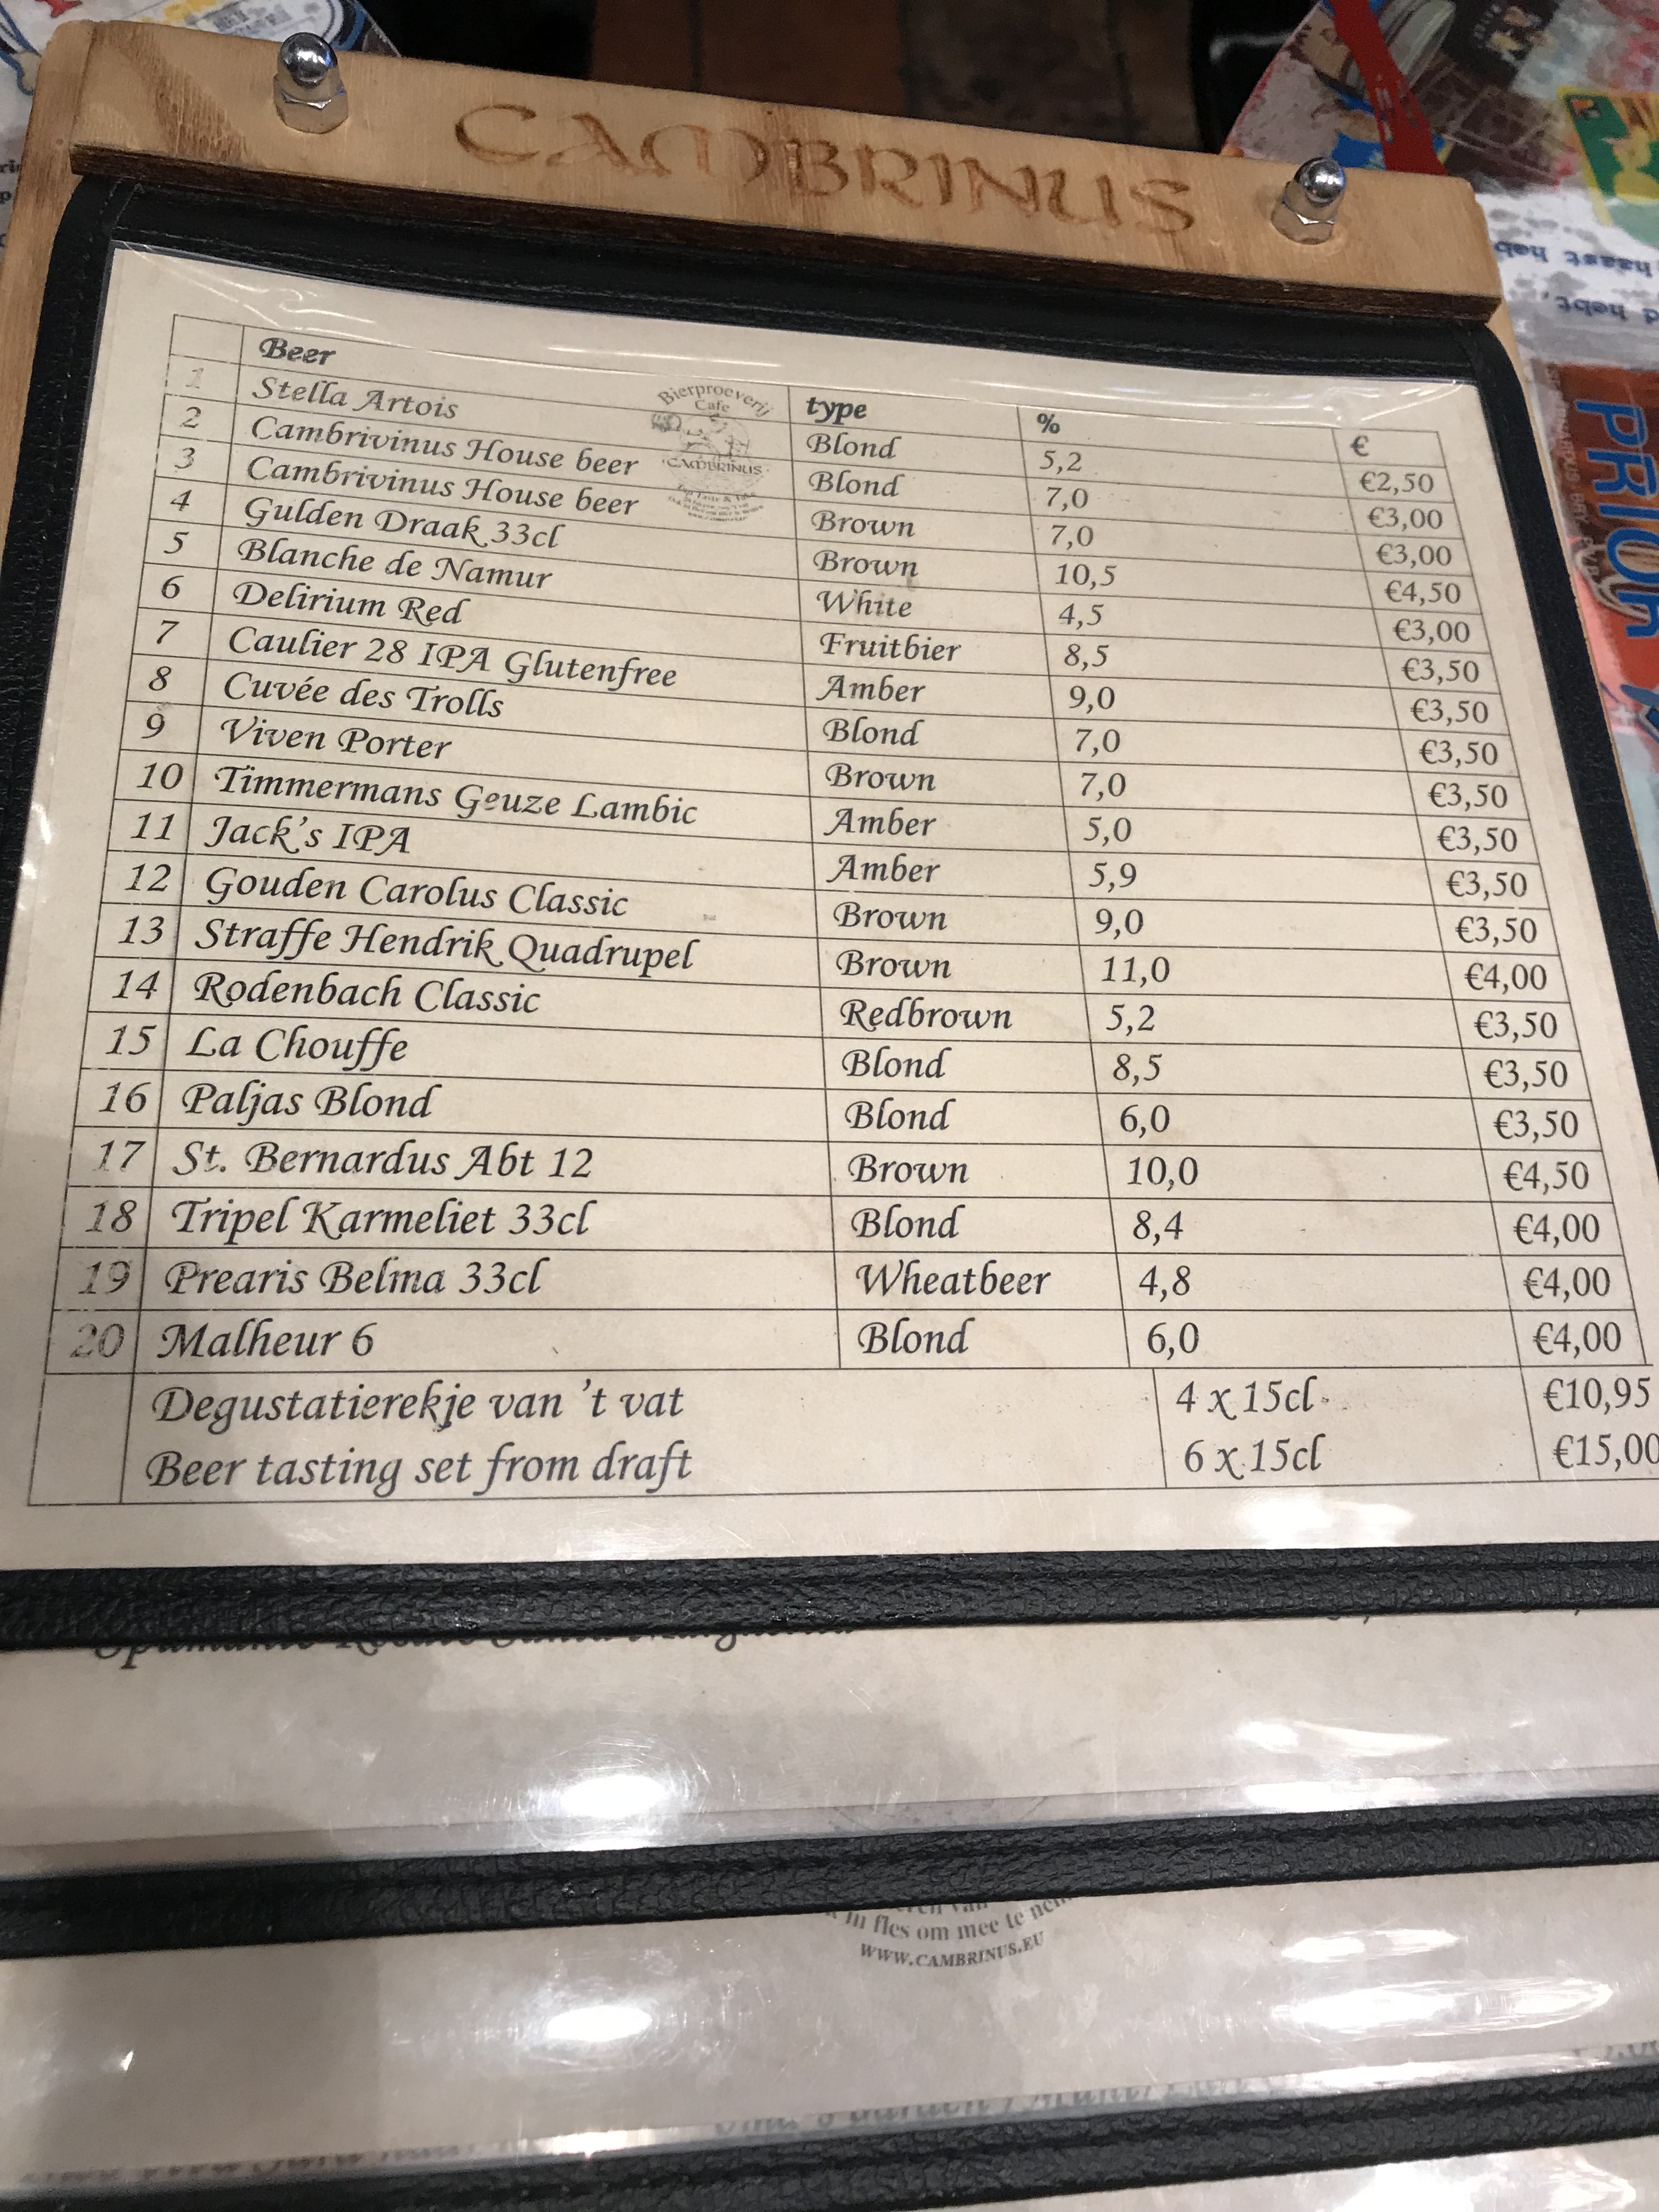 CAMBRINUS
Beer type % €
1 Stella Artois Blond 5,2 €2,50
2 Cambrivinus House beer Blond 7,0 €3,00
3 Cambrivinus House beer Brown 7,0 €3,00
4 Gulden Draak 33cl Brown 10,5 €4,50
5 Blanche de Namur White 4,5 €3,00
6 Delirium Red Fruitbier 8,5 €3,50
7 Caulier 28 IPA Glutenfree Amber 9,0 €3,50
8 Cuvée des Trolls Blond 7,0 €3,50
9 Viven Porter Brown 7,0 €3,50
10 Timmermans Geuze Lambic Amber 5,0 €3,50
11 Jack's IPA Amber 5,9 €3,50
12 Gouden Carolus Classic Brown 9,0 €3,50
13 Straffe Hendrik Quadrupel Brown 11,0 €4,00
14 Rodenbach Classic Redbrown 5,2 €3,50
15 La Chouffe Blond 8,5 €3,50
16 Paljas Blond Blond 6,0 €3,50
17 St. Bernardus Abt 12 Brown 10,0 €4,50
18 Tripel Karmeliet 33cl Blond 8,4 €4,00
19 Prearis Belma 33cl Wheatbeer 4,8 €4,00
20 Malheur 6 Blond 6,0 €4,00
Degustatierekje van 't vat 4 x 15cl €10,95
Beer tasting set from draft 6 x 15cl €15,00
Bierproeverij
Cafe
CAMBRINUS
in fles om mee te
WWW.CAMBRINUS.EU
PRIOR
haast heb
hebt,